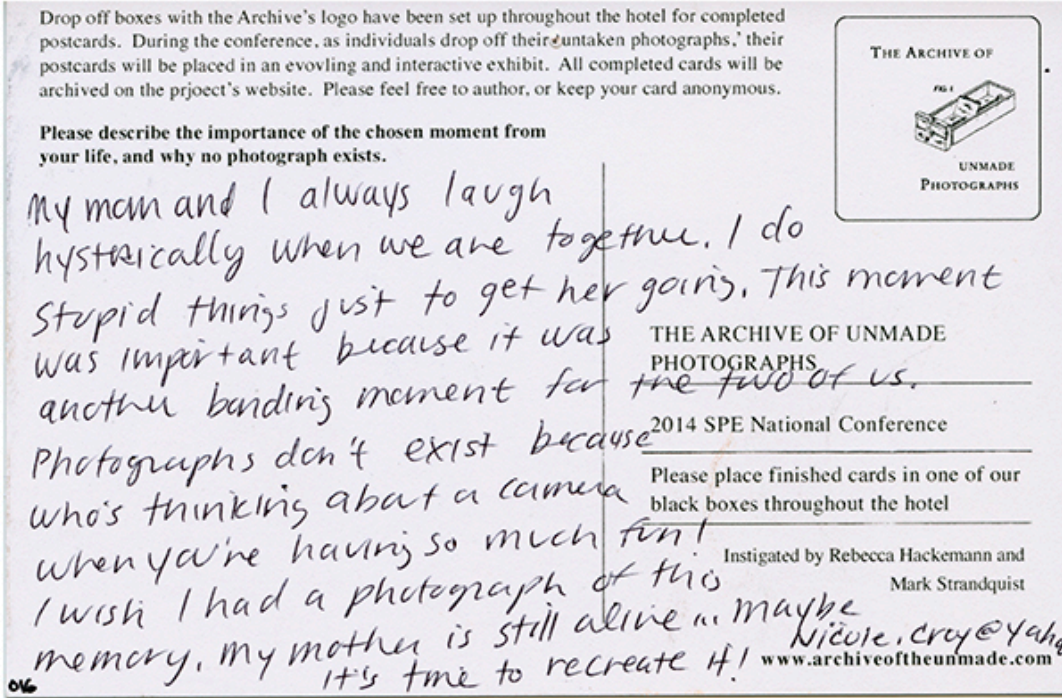 Drop off boxes with the Archive's logo have been set up throughout the hotel for completed
postcards. During the conference, as individuals drop off their 'untaken photographs,' their
postcards will be placed in an evovling and interactive exhibit. All completed cards will be
archived on the prjoect's website. Please feel free to author, or keep your card anonymous.
Please describe the importance of the chosen moment from
your life, and why no photograph exists.
THE ARCHIVE OF
FIG 1
UNMADE
PHOTOGRAPHS
My mom and I always laugh
hysterically when we are together. I do
stupid things just to get her going. This moment
was important because it was
another bonding moment for the two of us.
Photographs don't exist because
who's thinking about a camera
when you're having so much fun!
I wish I had a photograph of this
memory. My mother is still alive... maybe
it's time to recreate it!
THE ARCHIVE OF UNMADE
PHOTOGRAPHS
2014 SPE National Conference
Please place finished cards in one of our
black boxes throughout the hotel
Instigated by Rebecca Hackemann and
Mark Strandquist
Nicole.Croy@yaho
www.archiveoftheunmade.com
016